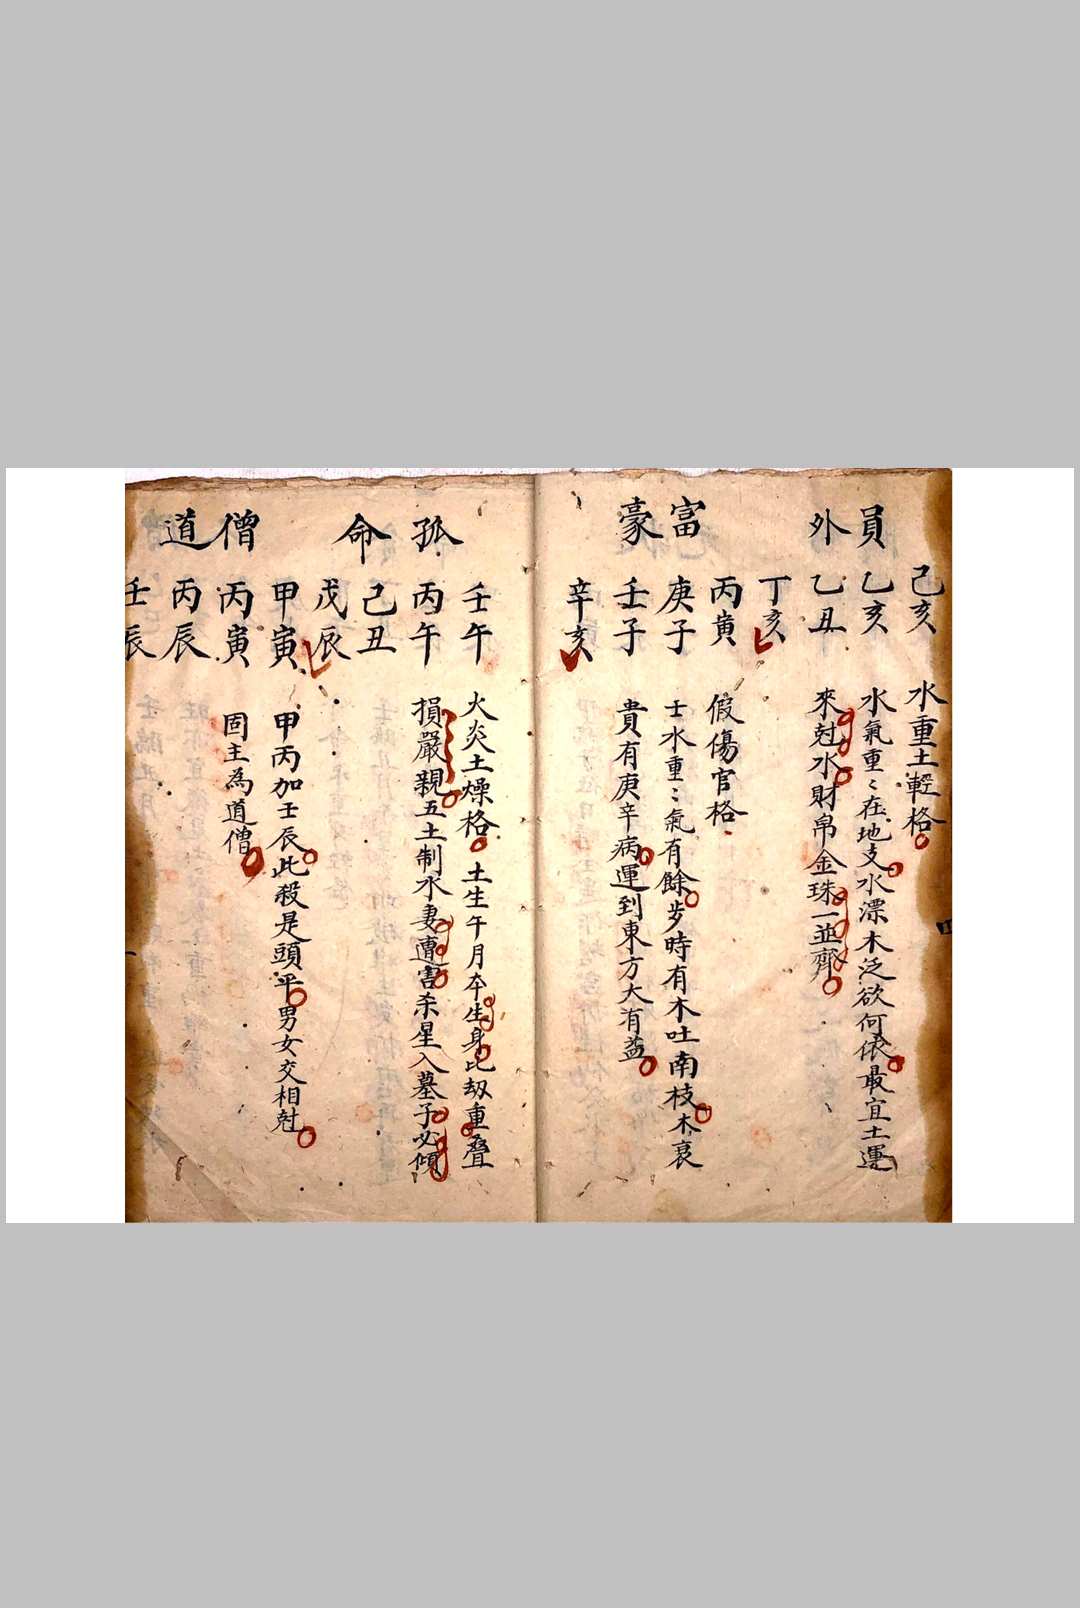 員外
己亥 水重土輕格
乙亥 水氣重〻在地支水漂木泛欲何依最宜土運
乙丑 來尅水財帛金珠一並齊
丁亥
富豪
丙寅 假傷官格
庚子 士水重〻氣有餘步時有木吐南枝木衰
壬子 貴有庚辛病運到東方大有益
辛亥
孤命
壬午 火炎土燥格 土生午月夲生身比刼重疊
丙午 損嚴親五土制水妻遭害杀星入墓子必傾
己丑
戊辰
僧道
甲寅 甲丙加壬辰此殺是頭平男女交相尅
丙寅 固主為道僧
丙辰
壬辰